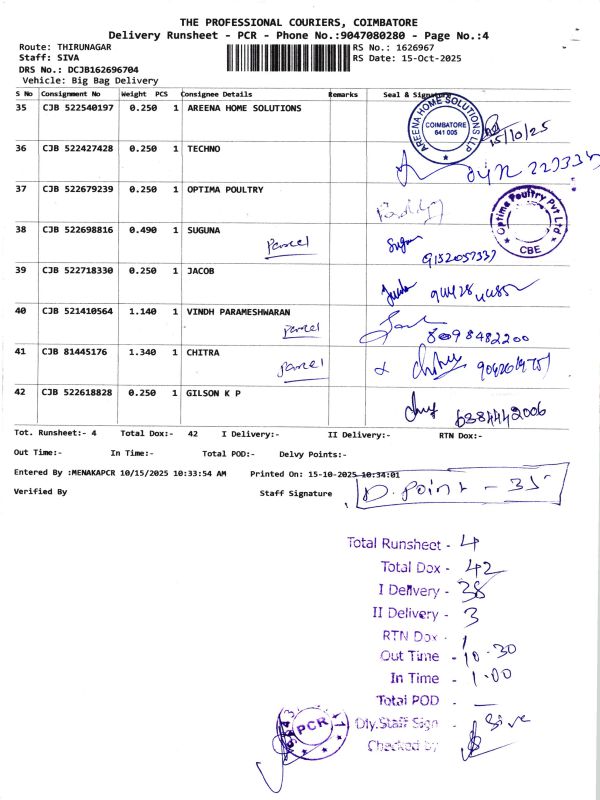 THE PROFESSIONAL COURIERS, COIMBATORE
Delivery Runsheet - PCR - Phone No.:9047080280 - Page No.:4
Route: THIRUNAGAR
RS No.: 1626967
Staff: SIVA
RS Date: 15-Oct-2025
DRS No.: DCJB162696704
Vehicle: Big Bag Delivery
S No Consignment No Weight PCS Consignee Details Remarks Seal & Signature
35 CJB 522540197 0.250 1 AREENA HOME SOLUTIONS
AREENA HOME SOLUTIONS LLP COIMBATORE 641 005
15/10/25
36 CJB 522427428 0.250 1 TECHNO
37 CJB 522679239 0.250 1 OPTIMA POULTRY
Optima Poultry Pvt Ltd CBE
38 CJB 522698816 0.490 1 SUGUNA
Parcel
9152057337
39 CJB 522718330 0.250 1 JACOB
40 CJB 521410564 1.140 1 VINDH PARAMESHWARAN
Parcel
8098482200
41 CJB 81445176 1.340 1 CHITRA
Parcel
42 CJB 522618828 0.250 1 GILSON K P
6384442006
Tot. Runsheet:- 4 Total Dox:- 42 I Delivery:- II Delivery:- RTN Dox:-
Out Time:- In Time:- Total POD:- Delvy Points:-
Entered By :MENAKAPCR 10/15/2025 10:33:54 AM Printed On: 15-10-2025 10:34:01
Verified By Staff Signature
D. Point - 35
Total Runsheet - 4
Total Dox - 42
I Delivery - 38
II Delivery - 3
RTN Dox - 1
Out Time - 10.30
In Time - 1.00
Total POD -
Dly.Staff Sign - Siva
Checked by
PCR